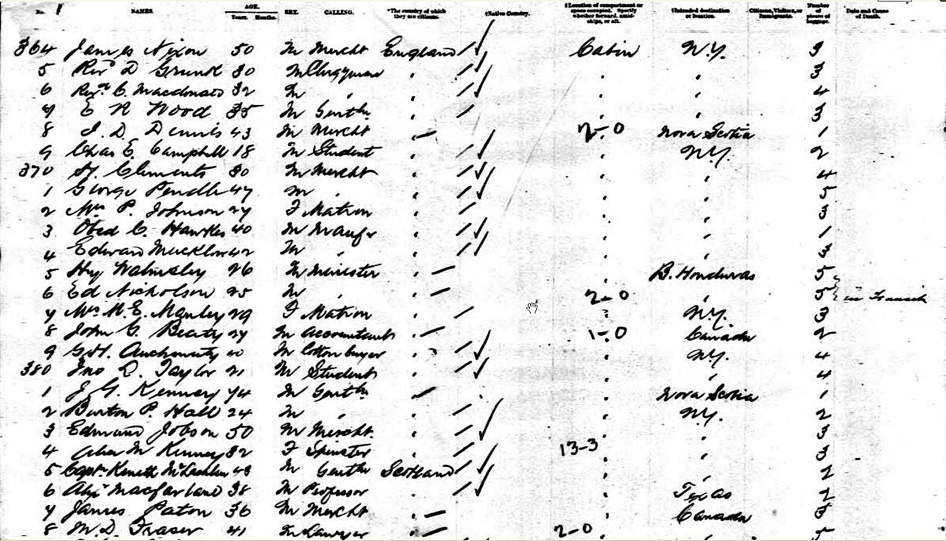 No. NAMES. AGE. Years. Months. SEX. CALLING. *The country of which they are citizens. †Native Country. ‡Location of compartment or space occupied. Specify whether forward, amidships, or aft. Intended destination or location. Citizens, Visitors, or Immigrants. Number of pieces of baggage. Date and Cause of Death.
364 James Nixon 50 M Mercht England Cabin N.Y. 3
5 Revd D 30 M Clergyman " " " 3
6 C. Macdonald 32 M " " " " 4
7 E R Wood 35 M Gentn " " " 3
8 J. D. Dennis 43 M Mercht " 2-0 Nova Scotia 1
9 Chas E. Campbell 18 M Student " " N.Y. 2
370 H. Clements 30 M Mercht " " " 4
1 George 47 M " " " " 5
2 Mrs P. Johnson 27 F Matron " " " 3
3 Obed C. Hawkes 40 M Manufr " " " 1
4 Edward 42 M " " " " 3
5 Hy Walmsley 26 M Minister " " B. Honduras 5
6 Ed Nicholson 25 M " " 2-0 " 5 in
7 Mrs M.E. Manley 29 F Matron " " N.Y. 3
8 John C. Beaty 27 M accountant " 1-0 Canada 2
9 G.H. Auchmuty M Cotton buyer " " N.Y. 4
380 Jno D. Taylor 21 M Student " " " 4
1 J.G. Kenney 74 M Gentn " " Nova Scotia 1
2 Burton P. Hall 24 M " " " N.Y. 2
3 Edmund Jobson 50 M Mercht. " " " 3
4 M Kinney 32 F Spinster " 13-3 " 3
5 Capt. Kenneth McLachlan 43 M Gentln Scotland " " 2
6 Alex Macfarland 38 M Professor " " Texas 2
7 James Paton 36 M Mercht " " Canada 3
8 M.D. Fraser 41 M Lawyer " 2-0 " 5